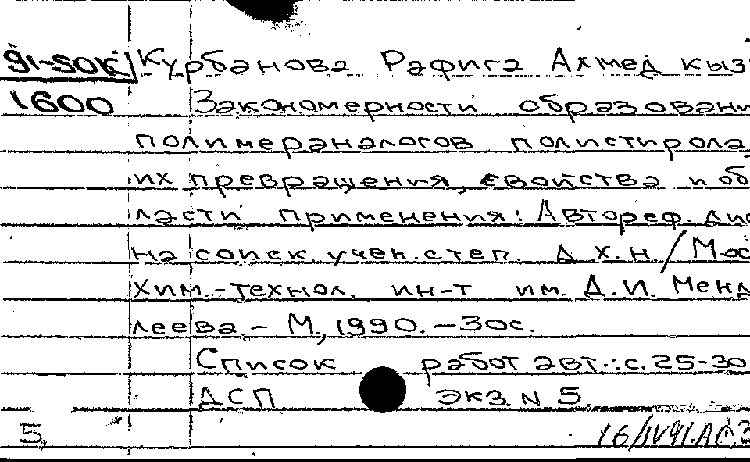 91-50К Курбанова Рафига Ахмед кыз
1600 Закономерности образовани
полимераналогов полистирола
их превращения, свойства и об
ласти применения: Автореф. дис
на соиск. учен. степ. д х.н. / Мос
хим.-технол. ин-т им. Д.И. Менд
леева. - М., 1990. - 30с.
Список работ авт.: с. 25-30
ДСП экз N 5
5.